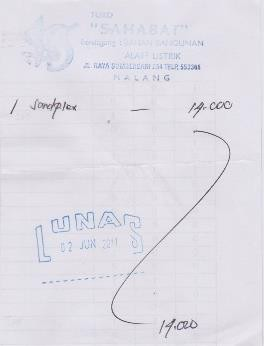 TOKO
"SAHABAT"
BAHAN BANGUNAN
ALAT LISTRIK
JL. RAYA SUMBERSARI 254 TELP. 553365
MALANG
1 Sandplex — 14.000
LUNAS
02 JUN 2011
14.000